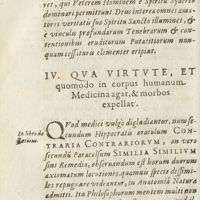 qui, vel Veterem Hominem è Spiritu Syderẽ
dominari permittunt. Deus interea omnes amatores
veritatis suo Spiritu Sancto illuminet, &
è vinculis profundarum Tenebrarum & contentionibus
eruditorum Putatitiorum nunquam
cessaturis clementer eripiat.
IV. QVA VIRTVTE, ET
quomodo in corpus humanum
Medicina agat, & morbos
expellat.
In libro de
QVod medici vulgò digladiantur, num secundum
Hippocratis oraculum CONTRARIA
CONTRARIORVM, an verò
secundũ Paracelsum SIMILIA SIMILIVM
sint Remedia, observandum est horum duorum
axiomatum locutiones, quamvis specie dissimiles
repugnare videantur, in Anatomiâ Naturæ
adimitas. Ita Philosophorum mentem multi non